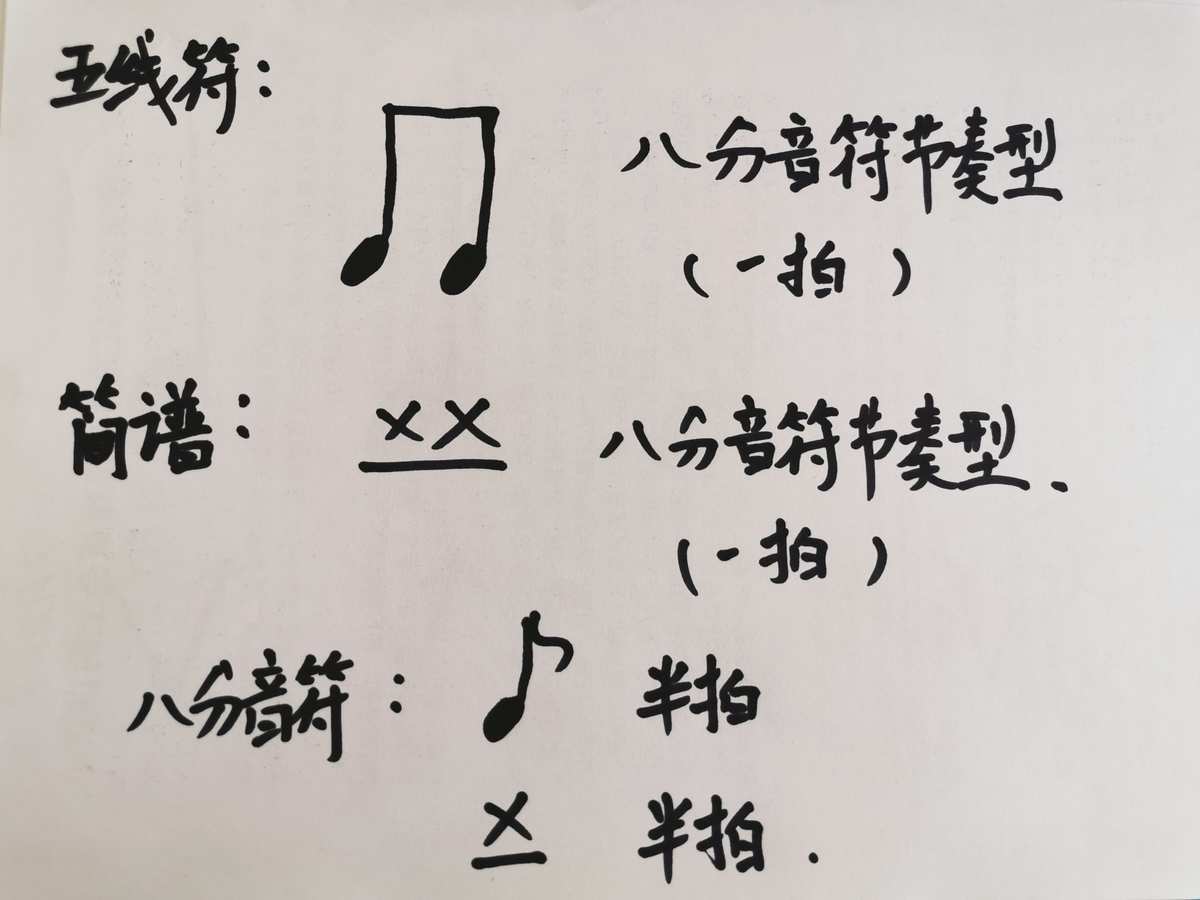 五线符：♫ 八分音符节奏型
（一拍）
简谱：X X 八分音符节奏型.
（一拍）
八分音符：♪ 半拍
X 半拍.